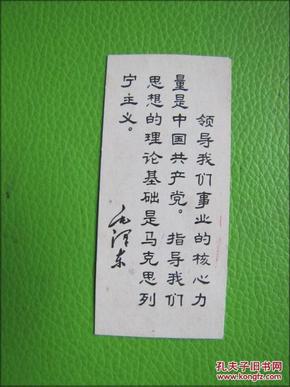 领导我们事业的核心力
量是中国共产党。指导我们
思想的理论基础是马克思列
宁主义。
毛泽东
孔夫子旧书网
www.kongfz.com